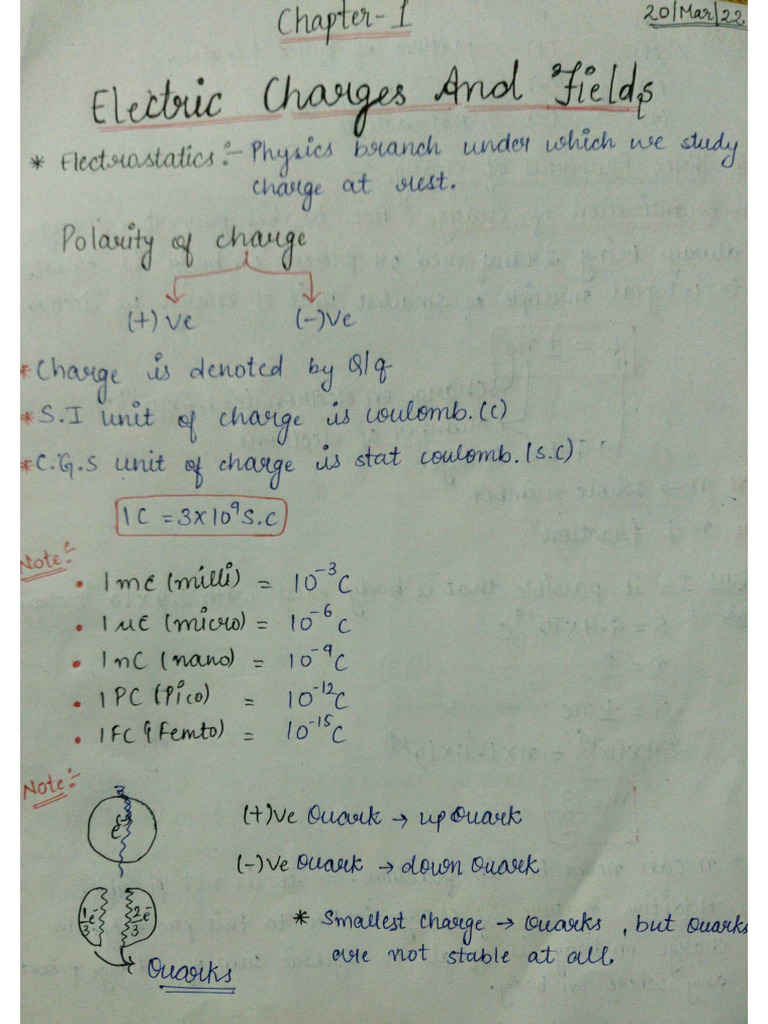 Chapter-1
20/Mar/22
Electric Charges And Fields
* Electrostatics:- Physics branch under which we study
charge at rest.
Polarity of charge
(+)ve (-)ve
*Charge is denoted by Q/q
*S.I unit of charge is coulomb.(C)
*C.G.S unit of charge is stat coulomb.(s.C)
1C = 3x10⁹ S.C
Note:-
• 1mC (milli) = 10⁻³C
• 1μC (micro) = 10⁻⁶C
• 1nC (nano) = 10⁻⁹C
• 1PC (Pico) = 10⁻¹²C
• 1FC (Femto) = 10⁻¹⁵C
Note:-
(+)ve Quark → up Quark
e⁻
(-)ve Quark → down Quark
1/3 e⁻ 2/3 e⁻
* Smallest charge → Quarks, but Quarks
are not stable at all.
Quarks